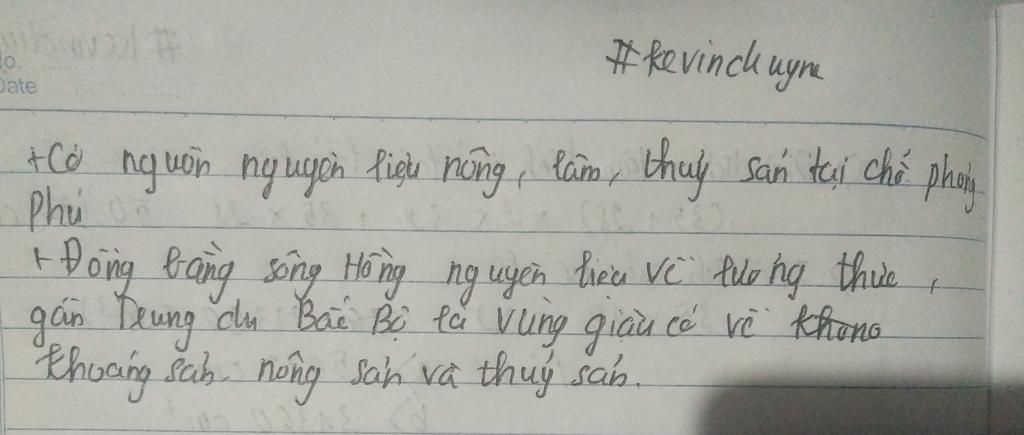 #kevinchuyne
No.
Date
+Có nguồn nguyên liệu nông, lâm, thuỷ sản tại chổ phong
Phú
+Đồng bằng sông Hồng nguyên liệu về lương thực,
gần Trung du Bắc Bộ là vùng giàu có về
khoáng sản. nông sản và thuỷ sản.